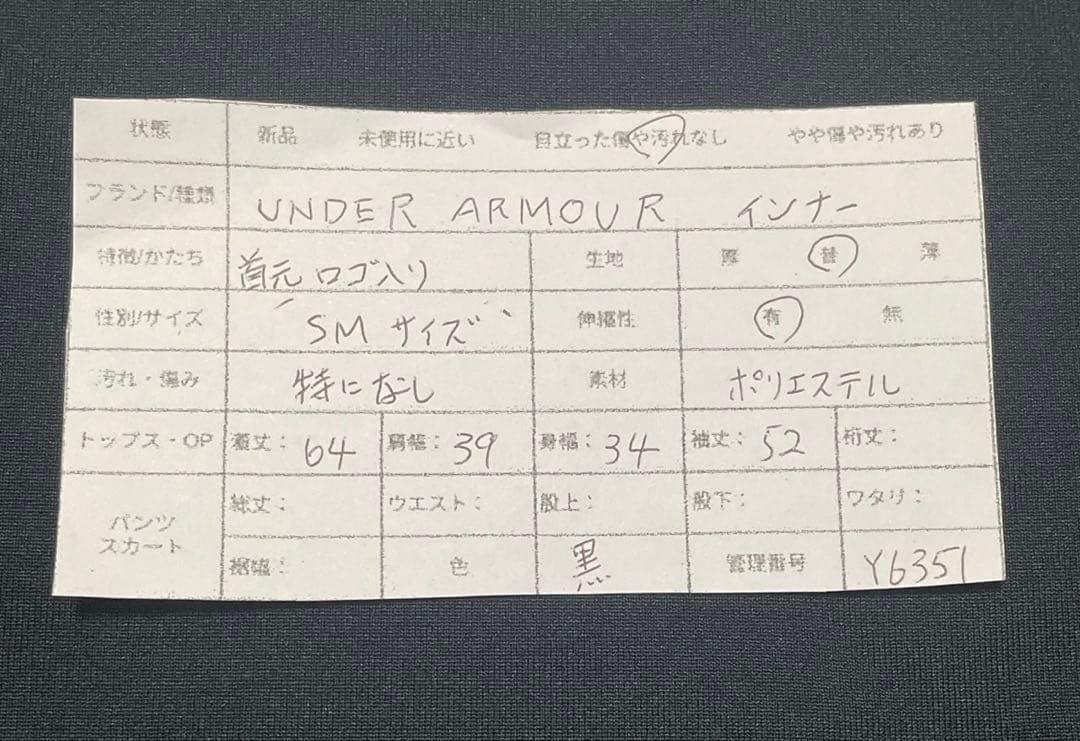 状態 新品 未使用に近い 目立った傷や汚れなし やや傷や汚れあり
ブランド/種類 UNDER ARMOUR インナー
特徴/かたち 首元ロゴ入り 生地 厚 普 薄
性別/サイズ SMサイズ 伸縮性 有 無
汚れ・傷み 特になし 素材 ポリエステル
トップス・OP 着丈: 64 肩幅: 39 身幅: 34 袖丈: 52 裄丈:
パンツ スカート 総丈: ウエスト: 股上: 股下: ワタリ:
裾幅: 色 黒 管理番号 Y6351